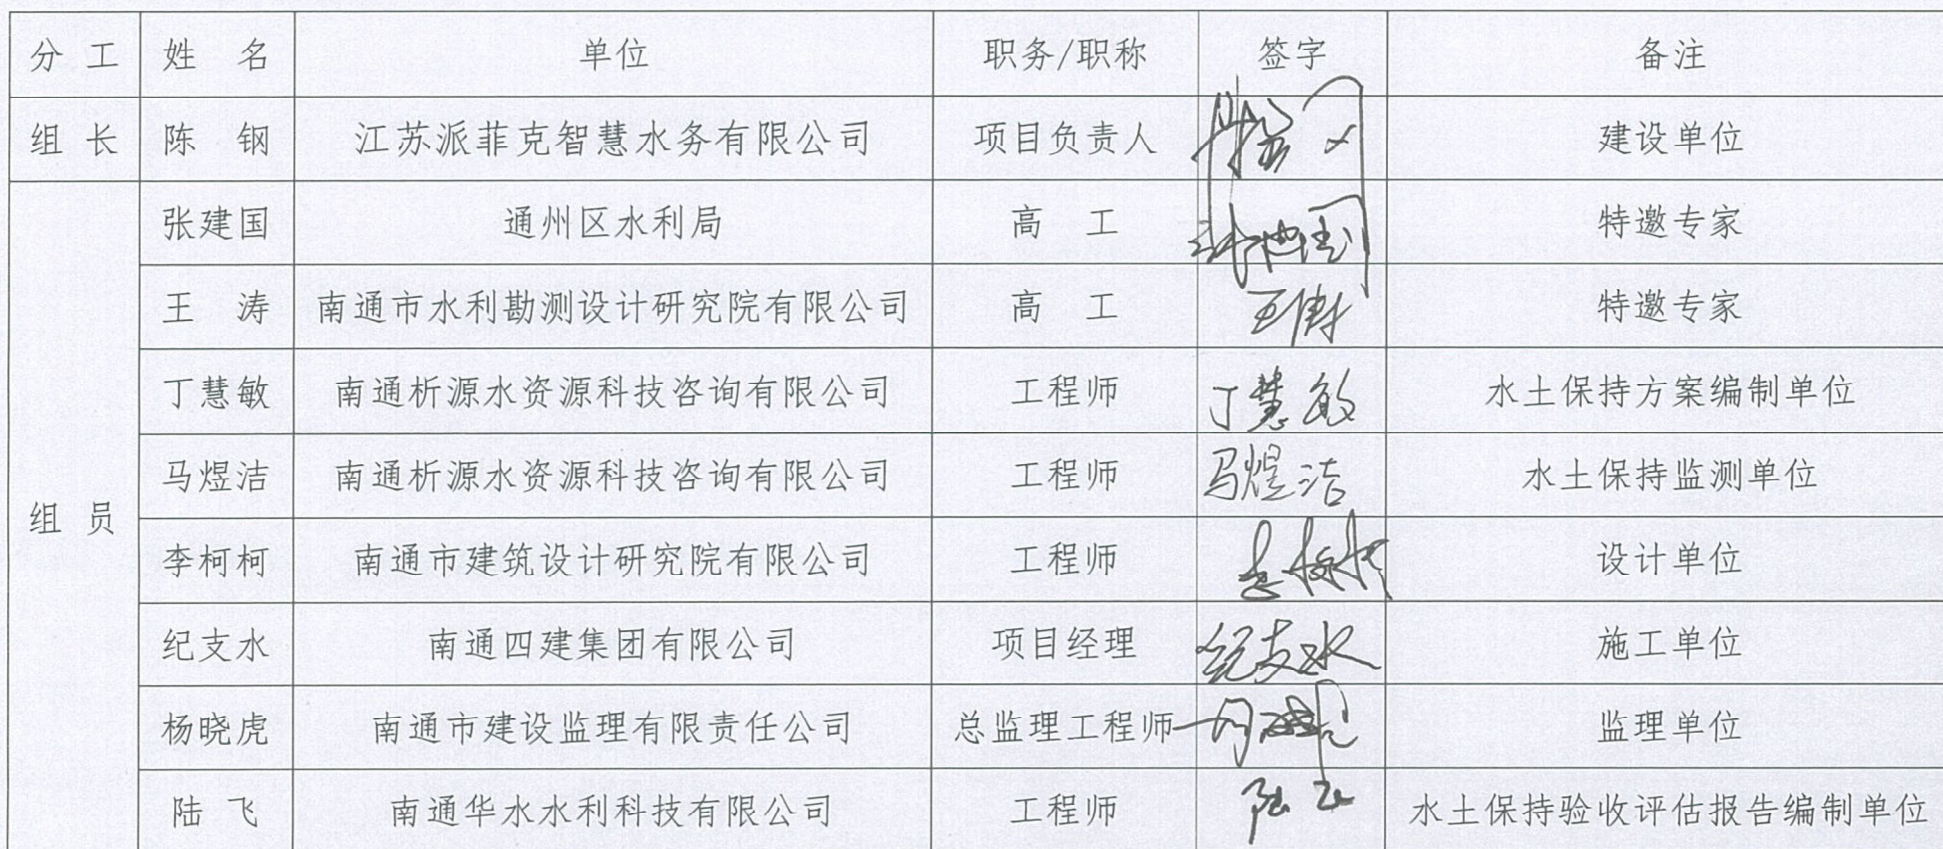 分 工 姓 名 单位 职务/职称 签字 备注
组 长 陈 钢 江苏派菲克智慧水务有限公司 项目负责人 建设单位
张建国 通州区水利局 高 工 张建国 特邀专家
王 涛 南通市水利勘测设计研究院有限公司 高 工 王涛 特邀专家
丁慧敏 南通析源水资源科技咨询有限公司 工程师 丁慧敏 水土保持方案编制单位
马煜洁 南通析源水资源科技咨询有限公司 工程师 马煜洁 水土保持监测单位
组 员
李柯柯 南通市建筑设计研究院有限公司 工程师 李柯柯 设计单位
纪支水 南通四建集团有限公司 项目经理 纪支水 施工单位
杨晓虎 南通市建设监理有限责任公司 总监理工程师 监理单位
陆 飞 南通华水水利科技有限公司 工程师 陆飞 水土保持验收评估报告编制单位